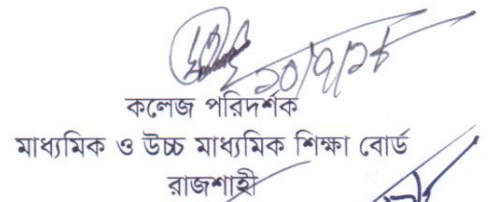 ২০/৭/১৮
কলেজ পরিদর্শক
মাধ্যমিক ও উচ্চ মাধ্যমিক শিক্ষা বোর্ড
রাজশাহী